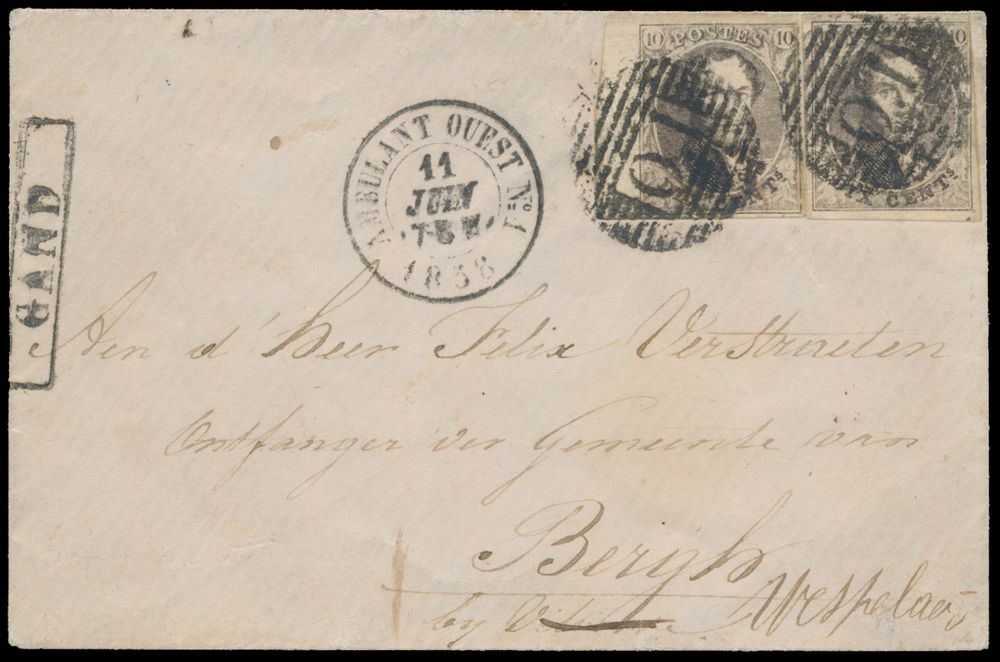 10 POSTES 10
CENTS
10
DIX CENTS
AMBULANT OUEST Nº1
11
JUIN
1858
GAND
Aen d'heer Felix Verstraeten
Ontfanger der Gemeente van
Bergh
by Wespelaer